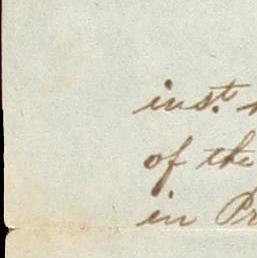 inst.
of the
in Pr